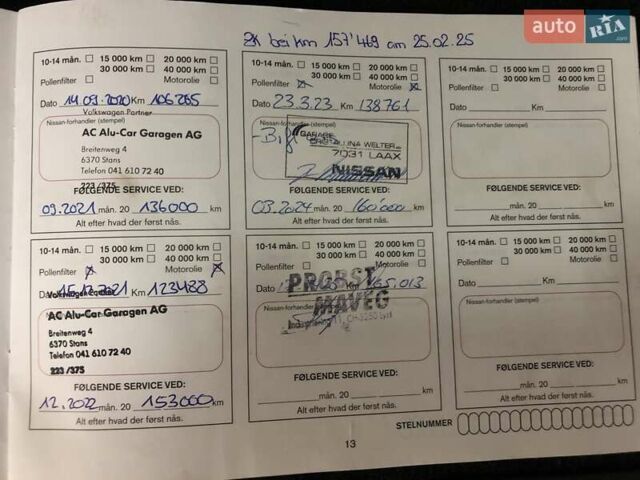 ZK bei km 157'469 am 25.02.25
auto RIA .com
10-14 mån. 15 000 km 20 000 km
30 000 km 40 000 km
Pollenfilter Motorolie
Dato 14.09.2020 Km 106265
Volkswagen Partner
Nissan-forhandler (stempel)
AC Alu-Car Garagen AG
Breitenweg 4
6370 Stans
Telefon 041 610 72 40
223/375
FØLGENDE SERVICE VED:
09.2021 mån. 20 136000 km
Alt efter hvad der først nås.
10-14 mån. 15 000 km 20 000 km
30 000 km 40 000 km
Pollenfilter Motorolie
Dato 23.3.23 Km 138761
Nissan-forhandler (stempel)
GARAGE
CRISTALLINA WELTER
7031 LAAX
NISSAN
FØLGENDE SERVICE VED:
03.2024 mån. 20 160'000 km
Alt efter hvad der først nås.
10-14 mån. 15 000 km 20 000 km
30 000 km 40 000 km
Pollenfilter Motorolie
Dato Km
Nissan-forhandler (stempel)
FØLGENDE SERVICE VED:
mån. 20 km
Alt efter hvad der først nås.
10-14 mån. 15 000 km 20 000 km
30 000 km 40 000 km
Pollenfilter Motorolie
Km 123488
AC Alu-Car Garagen AG
Breitenweg 4
6370 Stans
Telefon 041 610 72 40
223/375
FØLGENDE SERVICE VED:
12.2022 mån. 20 153000 km
Alt efter hvad der først nås.
10-14 mån. 15 000 km 20 000 km
30 000 km 40 000 km
Pollenfilter Motorolie
165.013
Nissan-forhandler (stempel)
PROBST
MAVEG
FØLGENDE SERVICE VED:
mån. 20 km
Alt efter hvad der først nås.
10-14 mån. 15 000 km 20 000 km
30 000 km 40 000 km
Pollenfilter Motorolie
Dato Km
Nissan-forhandler (stempel)
FØLGENDE SERVICE VED:
mån. 20 km
Alt efter hvad der først nås.
STELNUMMER
13